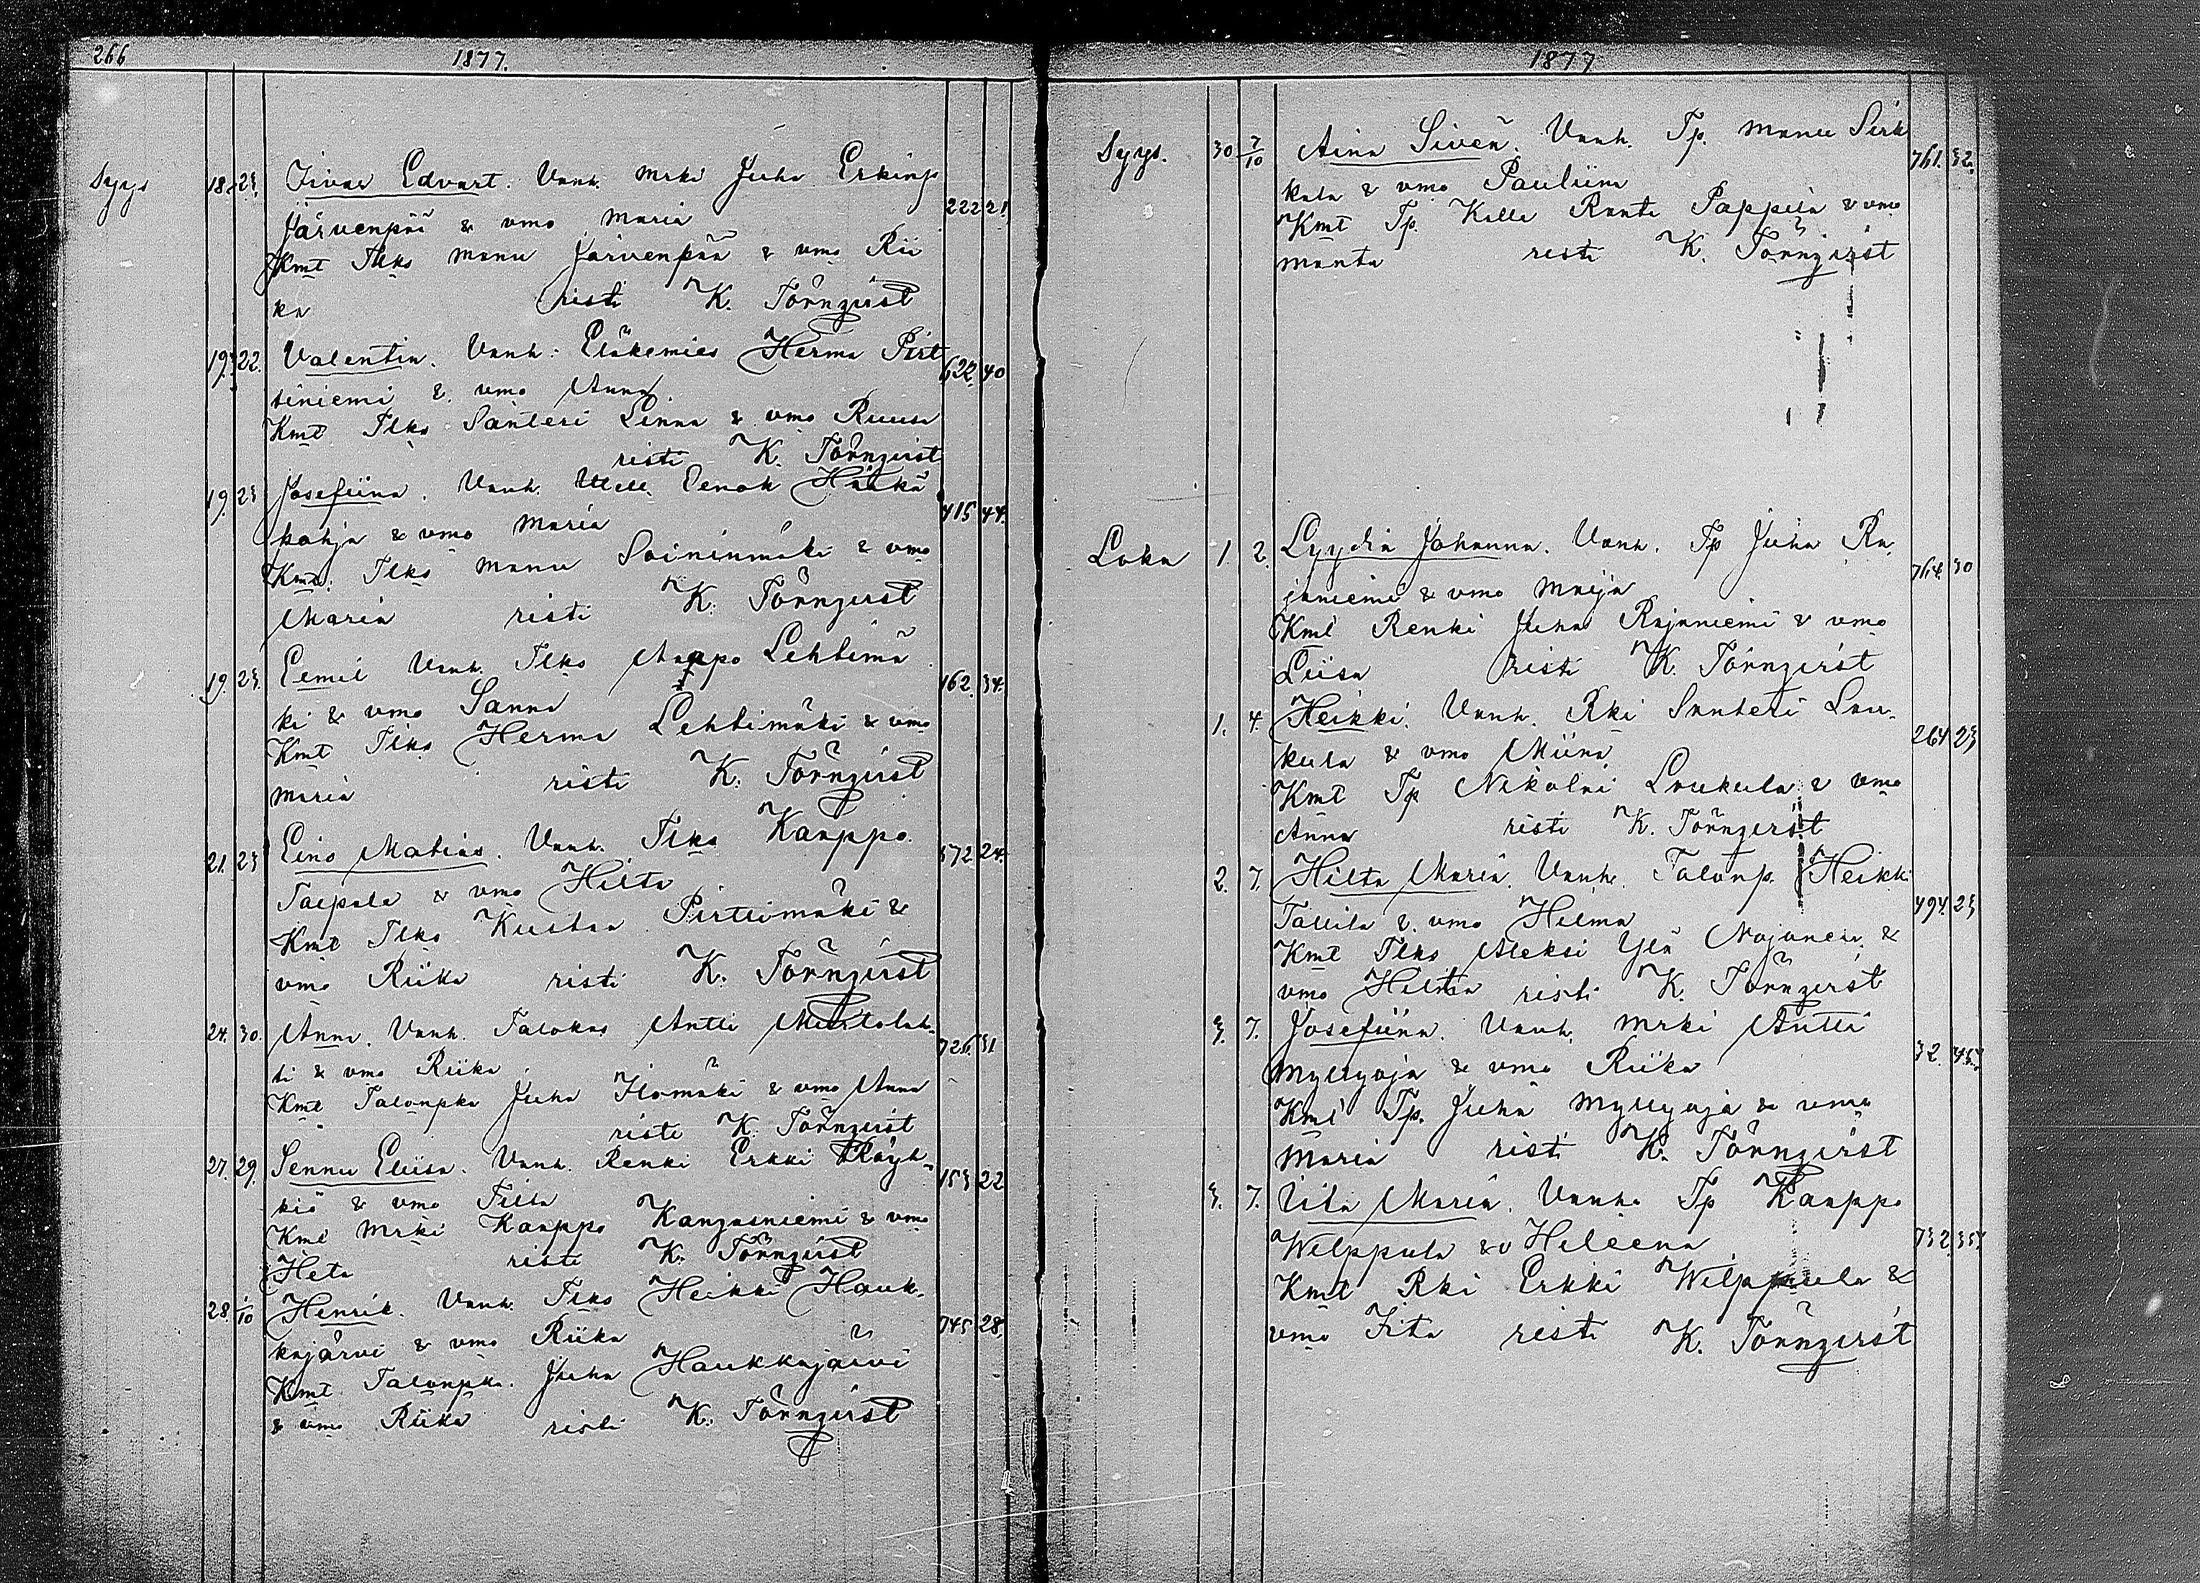 266
1877.
Syys
18. 23. Iivar Edvart. Vanh. Mrki Juha Erkinp
Järvenpää & vmo Maria 222 21
Kmt Tlks Manu Järvenpää & vmo Rii
ka risti K. Törnqvist
19. 22. Valentin. Vanh. Eläkemies Herma Pirt
tiniemi & vmo Anna 622. 40
Kmt Tlks Santeri Linna & vmo Ruusa
risti K. Törnqvist
19. 23 Josefiina. Vanh. Eenok Haaka
pohja & vmo Maria 415 44.
Kmt. Tlks Manu Soininmäki & vmo
Maria risti K. Törnqvist
19. 23. Eemil Vanh. Tlks Aappo Lehtimä
ki & vmo Sanna 162. 34.
Kmt Tlks Herma Lehtimäki & vmo
Maria risti K. Törnqvist
21. 23 Eino Matias. Vanh. Tlks Kaappo
Taipale & vmo Hilta 572 24.
Kmt Tlks Kustaa Pirttimäki &
vmo Riika risti K. Törnqvist
24. 30. Anna. Vanh. Talokas Antti Mustalah-
ti & vmo Riika 726. 31
Kmt Talonpka Juha Ilomäki & vmo Anna
risti K. Törnqvist
27. 29. Sennu Eliisa. Vanh. Renki Erkki Röyh-
kiö & vmo Tilta 153 22
Kmt Mrki Kaappo Kangasniemi & vmo
Heta risti K. Törnqvist
28. 1/10 Henrik. Vanh. Tlks Heikki Hauk-
kajärvi & vmo Riika 745 28.
Kmt. Talonpk. Juha Haukkajärvi
& vmo Riika risti K. Törnqvist
1877
Syys. 30 7/10 Aina Siveä. Vanh. Tp. Manu Sirk
kala & vmo Pauliina 761. 32.
Kmt Tp. Kalle Ranta Pappila & vmo
Manta risti K. Törnqvist
Loka 1. 2. Lyydia Johanna. Vanh. Tp Juha Ra
janiemi & vmo Maija 764. 30
Kmt Renki Juha Rajaniemi & vmo
Liisa risti K. Törnqvist
1. 4. Heikki. Vanh. Rki Santeri Lou-
kula & vmo Miina 264 23
Kmt Tp Nikolai Loukula & vmo
Anna risti K. Törnqvist
2. 7. Hilta Maria. Vanh. Talonp. Heikki
Tallila & vmo Hilma 494. 23
Kmt Tlks Aleksi Ylä Nojonen &
vmo Hilma risti K. Törnqvist
3. 7. Josefiina. Vanh. Mrki Antti
Myllyoja & vmo Riika 32.
Kmt Tp. Juha Myllyoja & vmo
Maria risti K. Törnqvist
3. 7. Iita Maria. Vanh. Tp Kaappo
Wilppula & v Heleena 732
Kmt Rki Erkki Wilppula &
vmo Iita risti K. Törnqvist